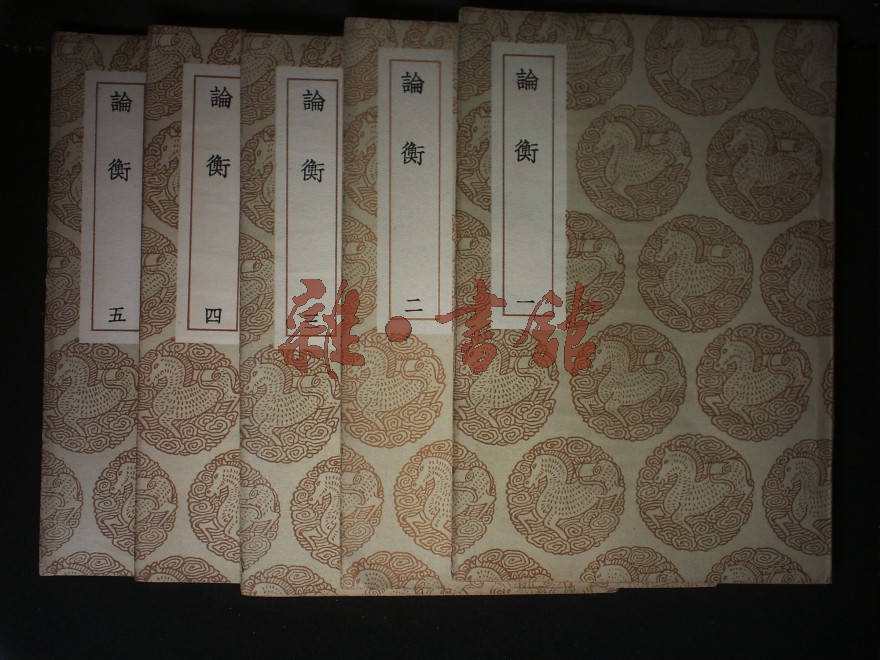 論衡
一
論衡
二
論衡
三
論衡
四
論衡
五
雜·書館